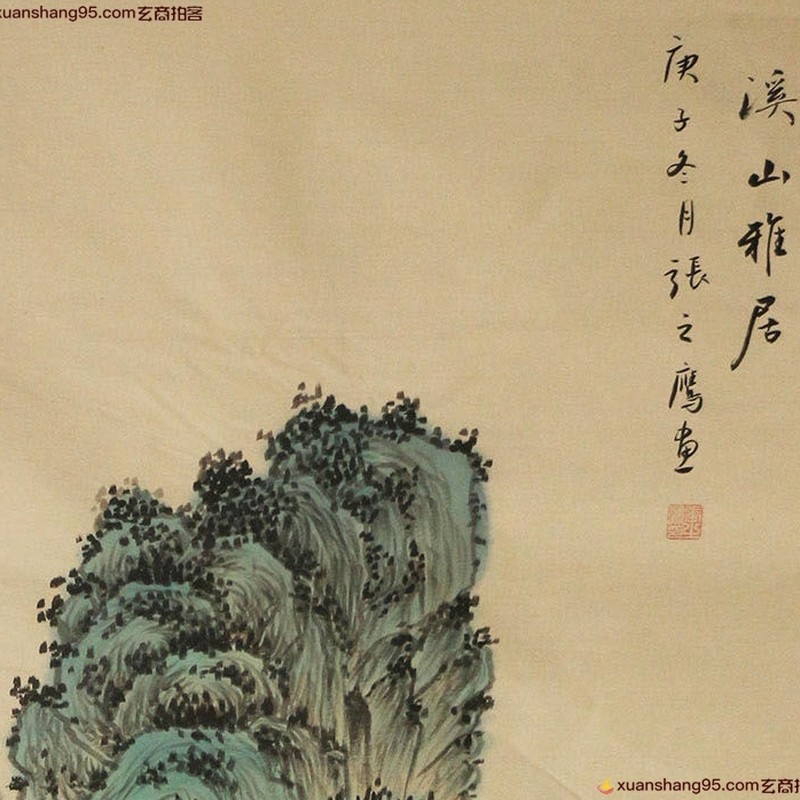 xuanshang95.com玄商拍客
溪山雅居
庚子冬月張之鹰画
xuanshang95.com玄商拍